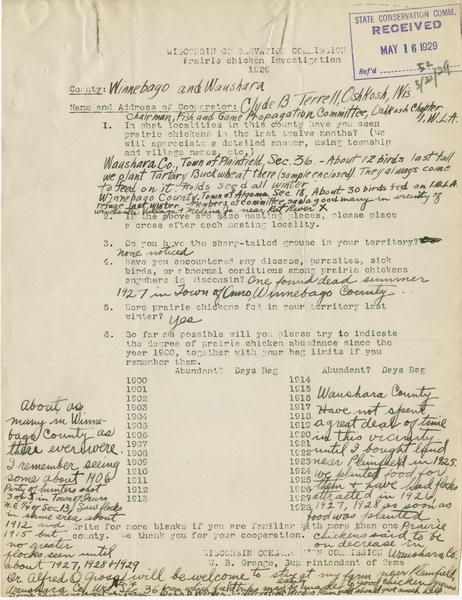 STATE CONSERVATION COMM.
RECEIVED
MAY 16 1929
Ref'd
WISCONSIN CONSERVATION COMMISSION
Prairie chicken Investigation
1929
County: Winnebago and Waushara
Name and Address of Cooperator: Clyde B. Terrell, Oshkosh, Wis
Chairman, Fish and Game Propagation Committee, Oshkosh Chapter I.W.L.A.
1. In what localities in this county have you seen
prairie chickens in the last twelve months? (We
will appreciate a detailed answer, using township
and village names, etc.)
Waushara Co., Town of Plainfield, Sec. 36. - About 12 birds last fall
we plant Tartary Buckwheat there (sample enclosed) They always come
to feed on it. Holds seed all winter
Winnebago County, Town of Algoma Sec. 18, About 30 birds fed on I.W.L.A.
refuge last winter. Members of committee saw a good many in vicinity of
Winchester Village & Medina & near Rat River X
2. If the above are also nesting places, please place
a cross after each nesting locality.
3. Do you have the sharp-tailed grouse in your territory?
None noticed
4. Have you encountered any disease, parasites, sick
birds, or abnormal conditions among prairie chickens
anywhere in Wisconsin? One found dead summer
1927 in Town of Omro, Winnebago County.
5. Were prairie chickens fed in your territory last
winter? Yes
6. So far as possible will you please try to indicate
the degree of prairie chicken abundance since the
year 1900, together with your bag limits if you
remember them.
Abundant? Days Bag Abundant? Days Bag
1900 1914
1901 1915
1902 1916
1903 1917
1904 1918
1905 1919
1906 1920
1907 1921
1908 1922
1909 1923
1910 1924
1911 1925
1912 1926
1913 1927
1928
About as
many in Winne-
bago County as
there ever were.
I remember seeing
some about 1906
Party of hunters shot
3 or 5 in Town of Omro
N.E. 1/4 of Sec 13) Saw flocks
in same area about
1912 and
1915 but
no greater
flocks than until
about 1927, 1928 + 1929
Waushara County
Have not spent
a great deal of time
in this vicinity
until I bought land
near Plainfield in 1925.
we planted food for
them & have had flocks
attracted in 1926,
1927, 1928 as soon as
food was planted
Prairie
chickens said to be
on decrease in
Waushara Co.
Write for more blanks if you are familiar with more than one
county. We thank you for your cooperation.
WISCONSIN CONSERVATION COMMISSION
W. B. Grange, Superintendent of Game
Dr Alfred O Gross will be welcome to stay at my farm near Plainfield,
Waushara County, Wis. Sec 36